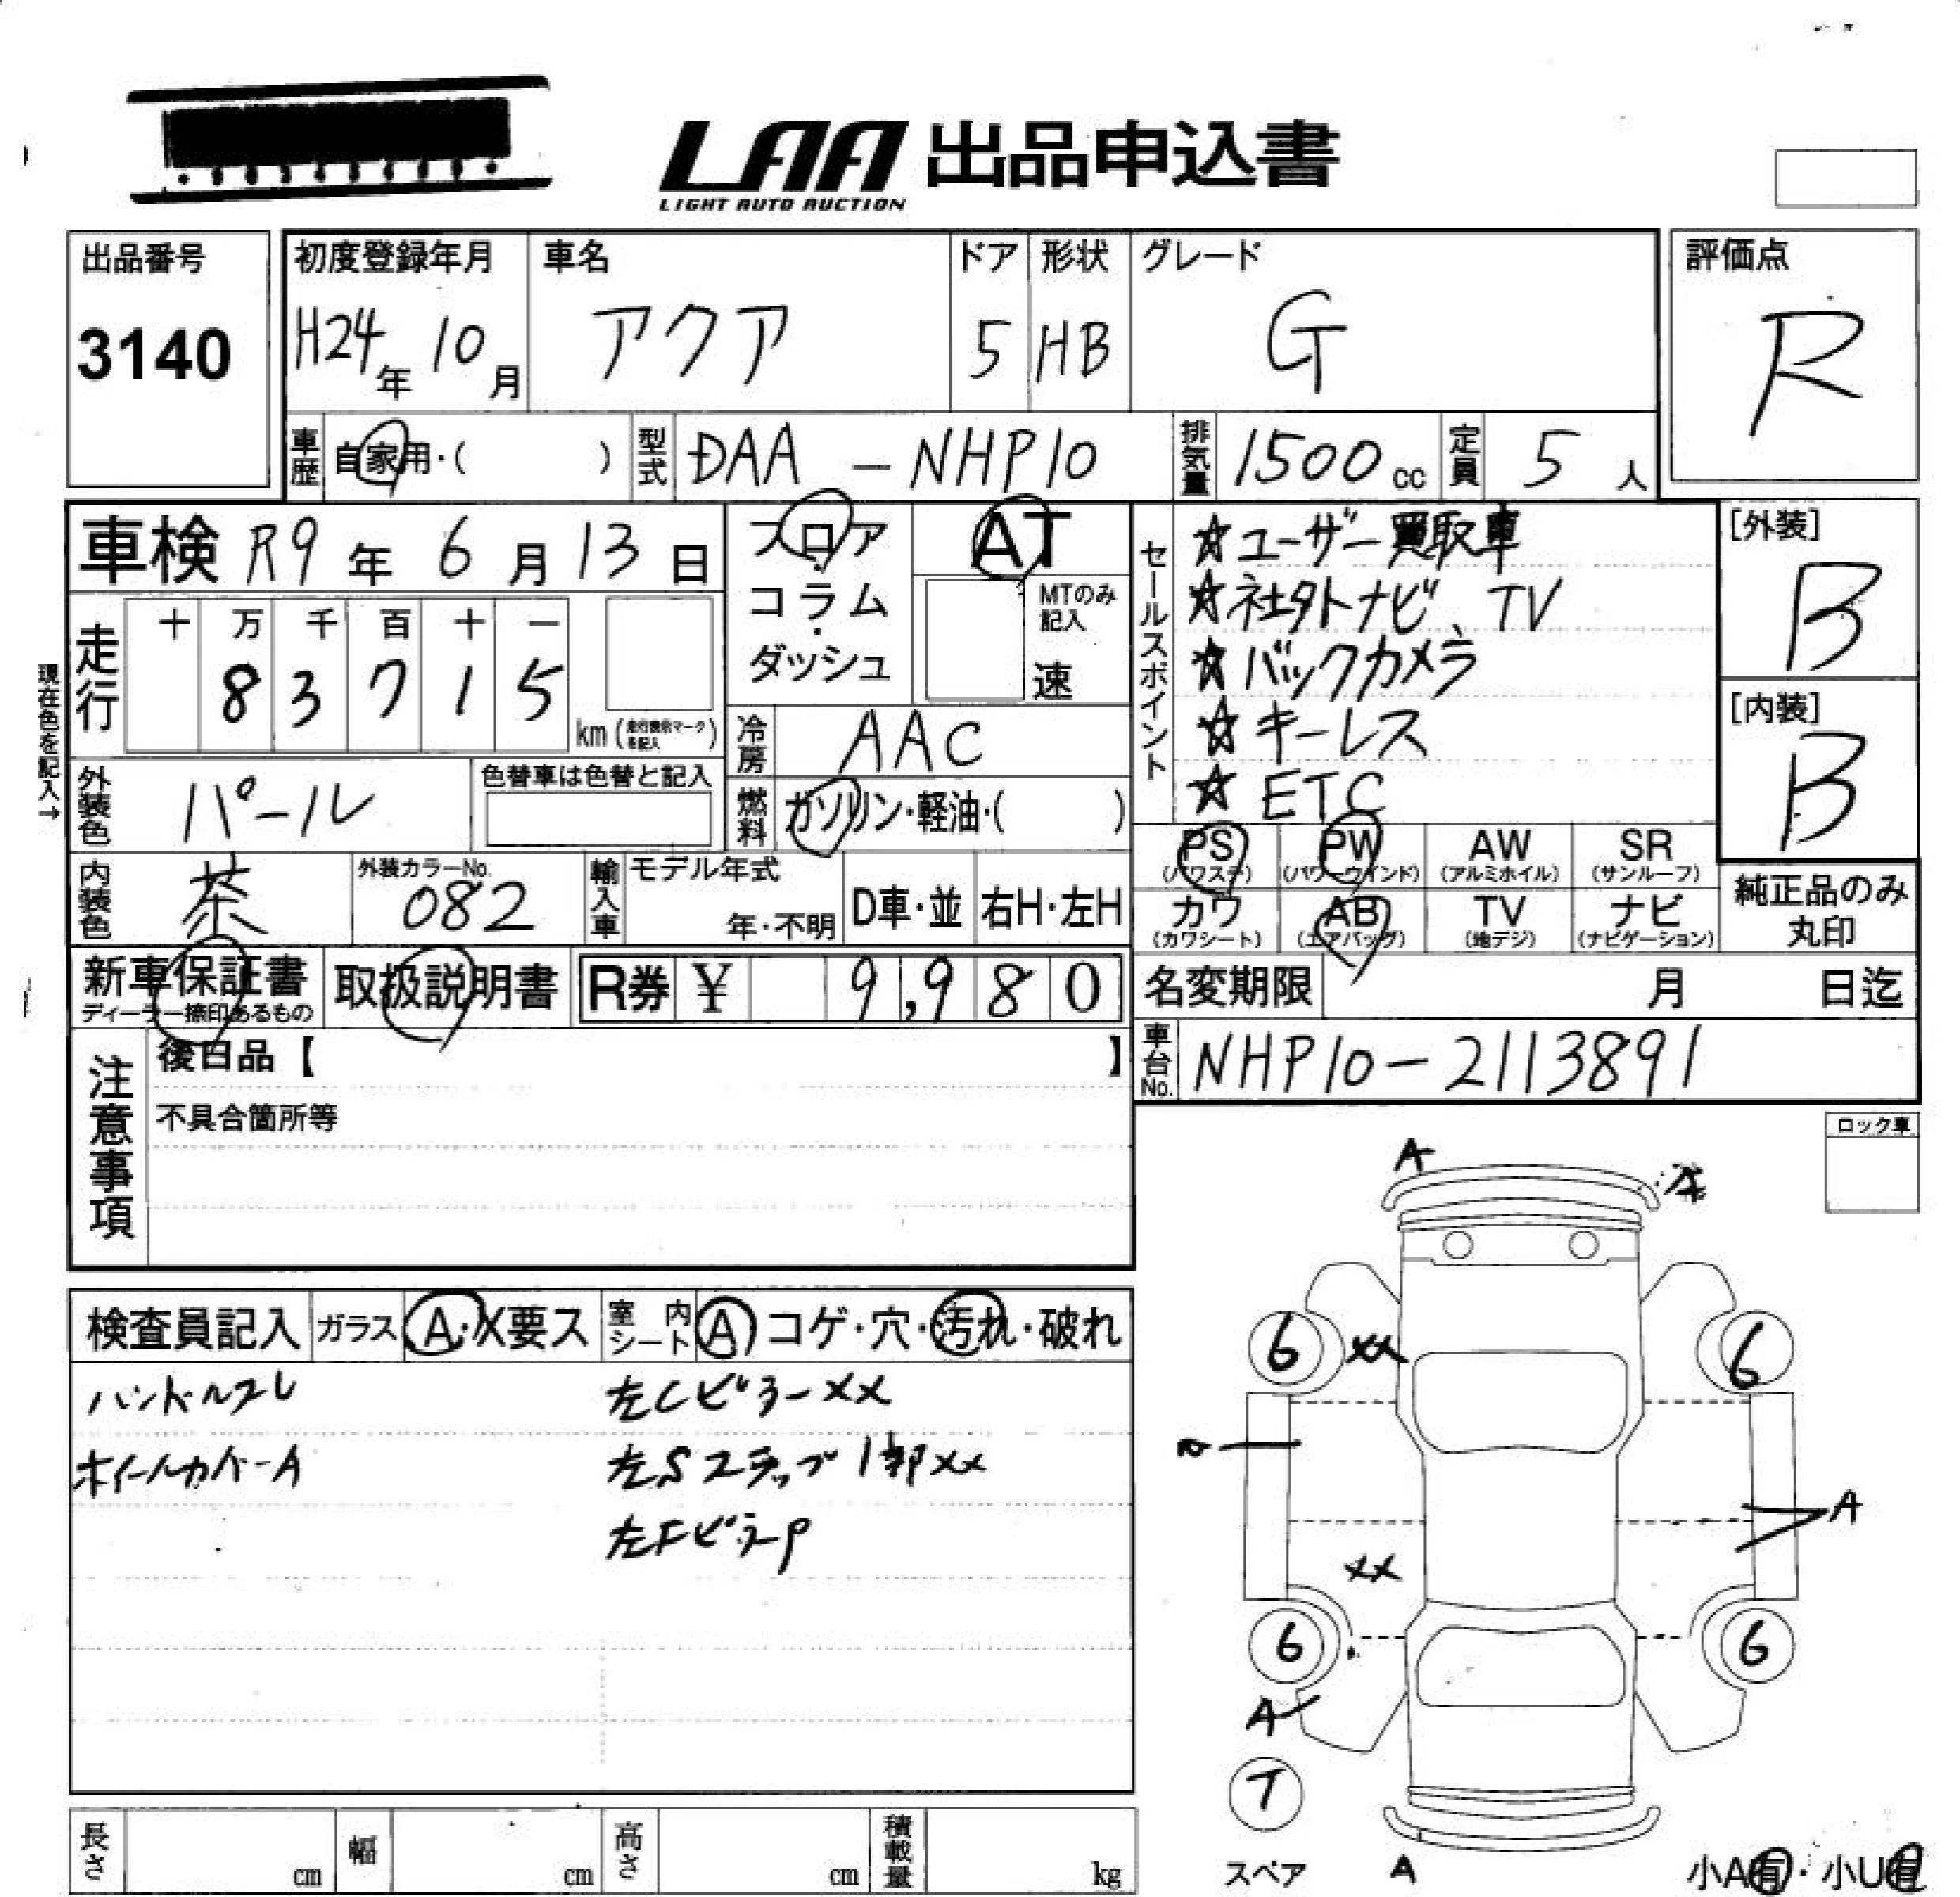 LAA 出品申込書
LIGHT AUTO AUCTION
出品番号
3140
初度登録年月
H24年 10月
車名
アクア
ドア
5
形状
HB
グレード
G
評価点
R
車歴 自家用・( )
型式 DAA - NHP10
排気量 1500 cc
定員 5 人
車検 R9年 6月 13日
走行
十 万 千 百 十 一
8 3 7 1 5
km (走行表示マークを記入)
現在色を記入→
外装色 パール
色替車は色替と記入
内装色 茶
外装カラーNo.
082
フロア・コラム・ダッシュ
AT
MTのみ記入
速
冷房 AAC
燃料 ガソリン・軽油・( )
輸入車
モデル年式
年・不明
D車・並
右H・左H
セールスポイント
☆ユーザー買取車
☆社外ナビ、TV
☆バックカメラ
☆キーレス
☆ETC
[外装]
B
[内装]
B
PS
(パワステ)
PW
(パワーウインド)
AW
(アルミホイル)
SR
(サンルーフ)
カワ
(カワシート)
AB
(エアバッグ)
TV
(地デジ)
ナビ
(ナビゲーション)
純正品のみ
丸印
新車保証書
ディーラー捺印あるもの
取扱説明書
R券 ¥ 9,980
名変期限 月 日迄
車台No. NHP10-2113891
注意事項
後日品【 】
不具合箇所等
ロック車
検査員記入
ガラス A・X要ス
室内シート A コゲ・穴・汚れ・破れ
ハンドルスレ
ホイールカバーA
左CピラーXX
左Sステップ1部XX
左FピラーP
A
6
XX
6
A
XX
6
6
A
T
スペア
A
小A有・小U有
長さ cm
幅 cm
高さ cm
積載量 kg